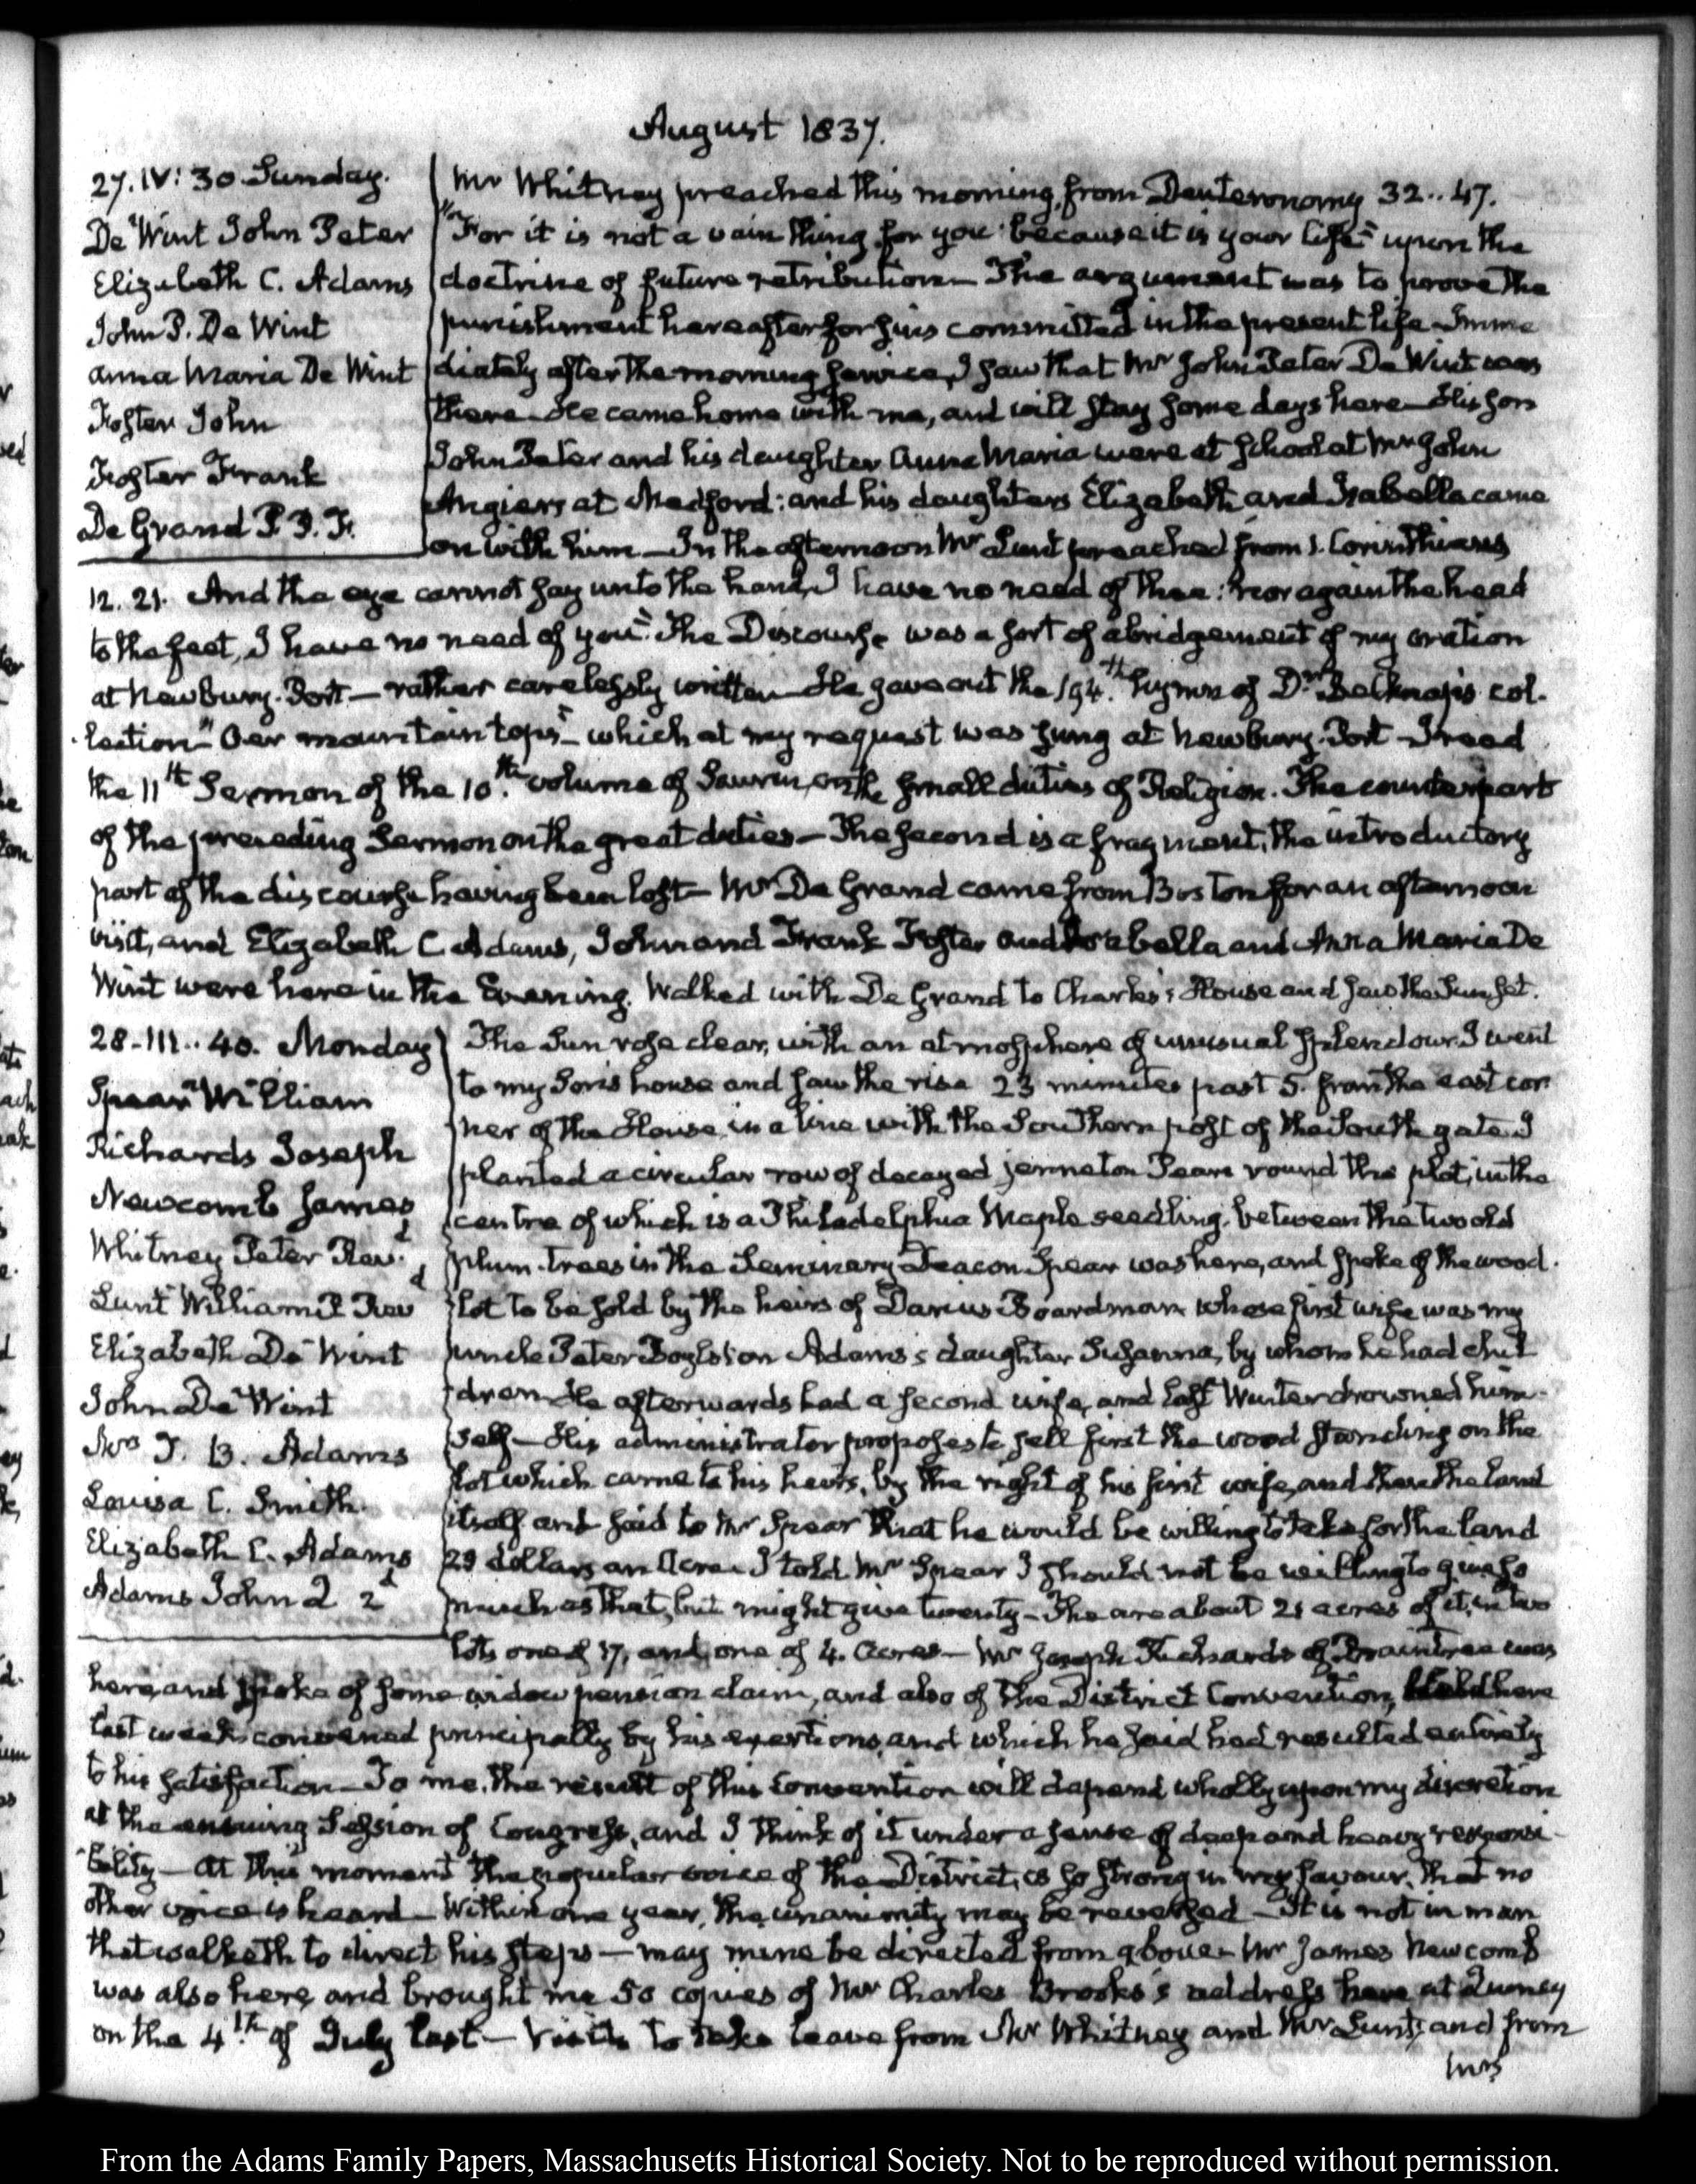 August 1837.
27. IV: 30 Sunday.
De Wint John Peter
Elizabeth C. Adams
John P. De Wint
Anna Maria De Wint
Foster John
Foster Frank
De Grand P. P. F.
Mr Whitney preached this morning, from Deuteronomy 32..47.
"For it is not a vain thing for you: because it is your life" upon the
doctrine of future retribution— The argument was to prove the
punishment hereafter for sins committed in the present life— Imme
diately after the morning service, I saw that Mr John Peter De Wint was
there— He came home with me, and will stay some days here— His son
John Peter and his daughter Anna Maria were at school at Mr John
Angiers at Medford: and his daughters Elizabeth and Isabella came
on with him— In the afternoon Mr Lunt preached from 1. Corinthians
12. 21. And the eye cannot say unto the hand, I have no need of thee: nor again the head
to the feet, I have no need of you". The Discourse was a sort of abridgement of my oration
at Newbury-Port— rather carelessly written— He gave out the 194.th hymn of Dr Belknap's col-
-lection— "O'er mountain tops"— which at my request was sung at Newbury-Port— I read
the 11th Sermon of the 10.th volume of Saurin, on the small duties of Religion. The counterpart
of the preceding Sermon on the great duties— The second is a fragment, the introductory
part of the discourse having been lost— Mr De Grand came from Boston for an afternoon
visit, and Elizabeth C Adams, John and Frank Foster and Isabella and Anna Maria De
Wint were here in the Evening. Walked with De Grand to Charles's House and saw the Sun set.
28. III.. 40. Monday
Spear William
Richards Joseph
Newcomb James
Whitney Peter Revd.
Lunt William P Revd
Elizabeth De Wint
John De Wint
Mrs T. B. Adams
Louisa C. Smith.
Elizabeth C. Adams
Adams John Q 2d
The Sun rose clear, with an atmosphere of unusual splendour. I went
to my Son's house and saw the rise 23 minutes past 5. from the east cor
ner of the House, in a line with the Southern post of the South gate— I
planted a circular row of decayed jenneton Pears round the plot, in the
centre of which is a Philadelphia Maple seedling, between the two old
plum-trees in the Seminary— Deacon Spear was here, and spoke of the wood-
lot to be sold by the heirs of Darius Boardman whose first wife was my
uncle Peter Boylston Adams's daughter Susanna, by whom he had chil
dren— He afterwards had a second wife, and last Winter drowned him-
self— His administrator proposes to sell first the wood standing on the
lot which came to his heirs, by the right of his first wife, and then the land
itself and said to Mr Spear that he would be willing to take for the land
29 dollars an Acre— I told Mr Spear I should not be willing to give so
much as that, but might give twenty— The are about 21 acres of it, in two
lots one of 17, and one of 4. Acres— Mr Joseph Richards of Braintree was
here, and spoke of some widow pension claim, and also of the District Convention, held here
last week, convened principally by his exertions, and which he said had resulted entirely
to his satisfaction— To me, the result of this Convention will depend wholly upon my discretion
at the ensuing Session of Congress, and I think of it under a sense of deep and heavy responsi-
-bility— At this moment the popular voice of the District, is so strong in my favour, that no
other voice is heard— Within one year, the unanimity may be reversed— It is not in man
that walketh to direct his steps— may mine be directed from above— Mr James Newcomb
was also here, and brought me 50 copies of Mr Charles Brooks's address here at Quincy
on the 4.th of July last— Visits to take leave from Mr Whitney and Mr Lunt; and from
Mrs
From the Adams Family Papers, Massachusetts Historical Society. Not to be reproduced without permission.